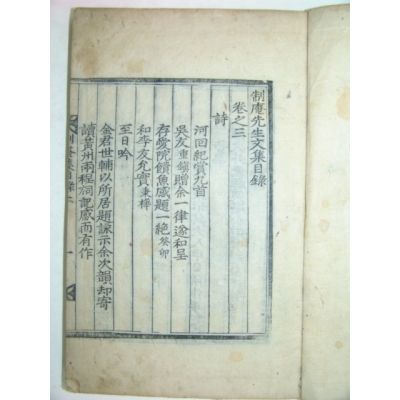 制庵先生文集目錄
卷之三
詩
河回紀賞九首
吳友重鎭贈余一律遂和呈
存愛院饋魚感題一絶 癸卯
和李友允實秉樺
至日吟
金君世輔以所居題詠示余次韻却寄
讀黃州兩程祠記感而有作